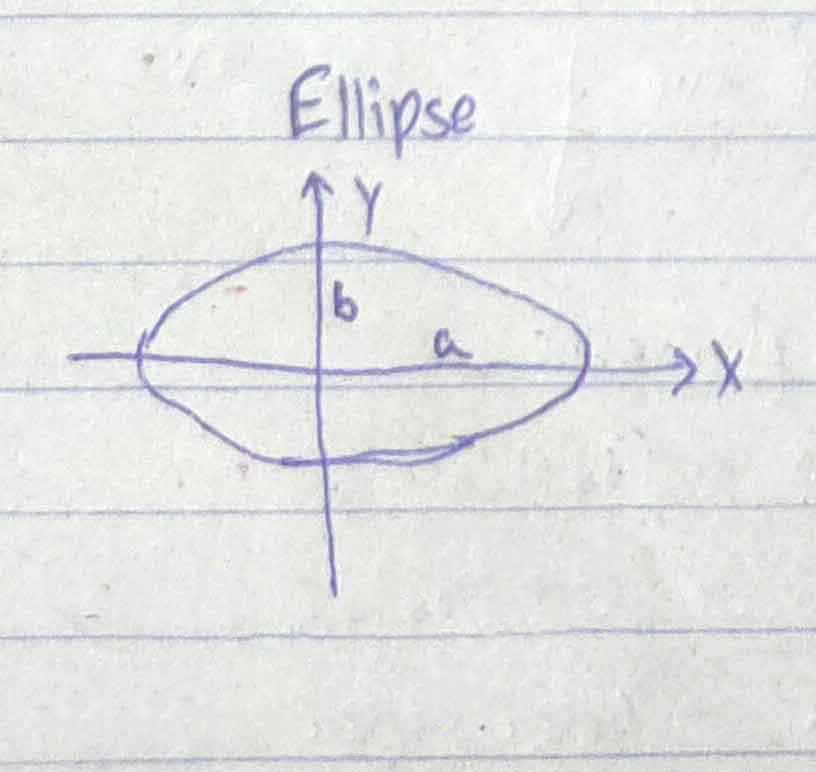 Ellipse
Y
b
a
X